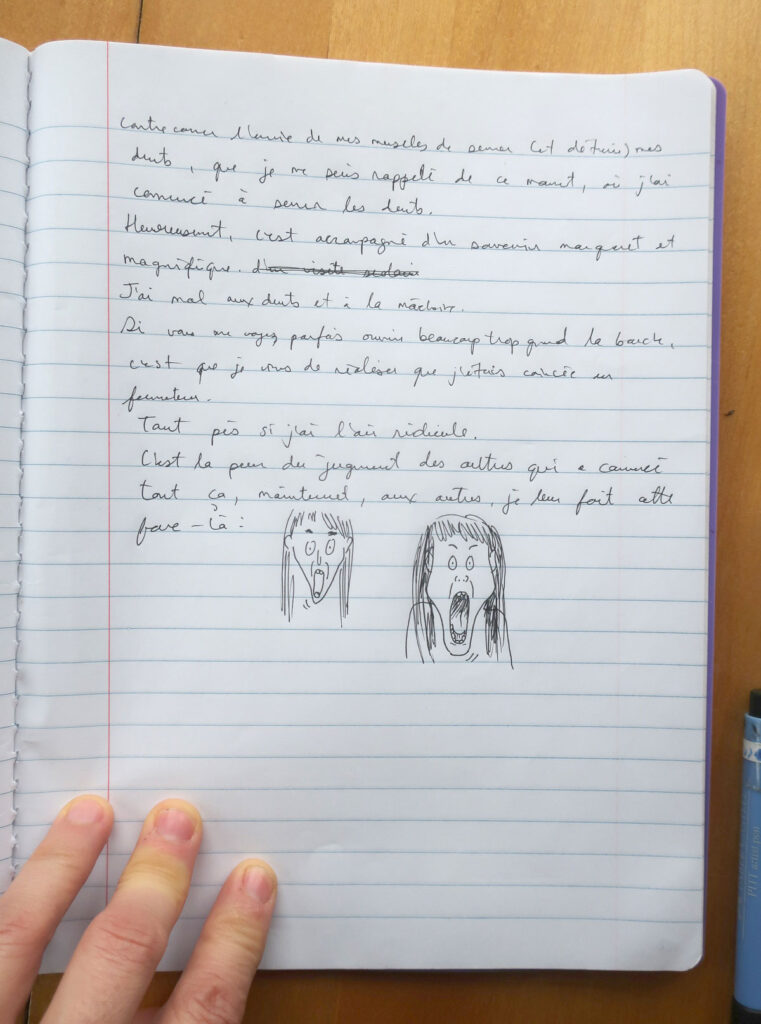 contrecarrer l'envie de mes muscles de serrer (et détruire) mes
dents, que je me suis rappelé de ce moment, où j'ai
commencé à serrer les dents.
Heureusement, c'est accompagné d'un souvenir marquant et
magnifique. d'un visite scolaire
J'ai mal aux dents et à la mâchoire.
Si vous me voyez parfois ouvrir beaucoup trop grand la bouche,
c'est que je viens de réaliser que j'étais coincée en
fermeture.
Tant pis si j'ai l'air ridicule.
C'est la peur du jugement des autres qui a commencé
tout ça, maintenant, aux autres, je leur fait cette
face-là :
PITT artist pen